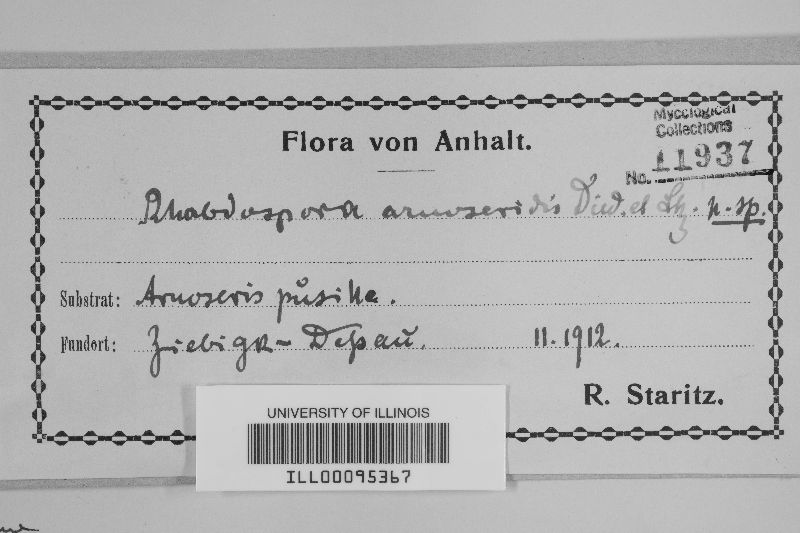 Flora von Anhalt.
Mycological
Collections
No. 11937
Rhabdospora arnoseridis Died. et n. sp.
Substrat: Arnoseris pusilla.
Fundort: Ziebigk - Deßau. 11. 1912.
R. Staritz.
UNIVERSITY OF ILLINOIS
ILL00095367